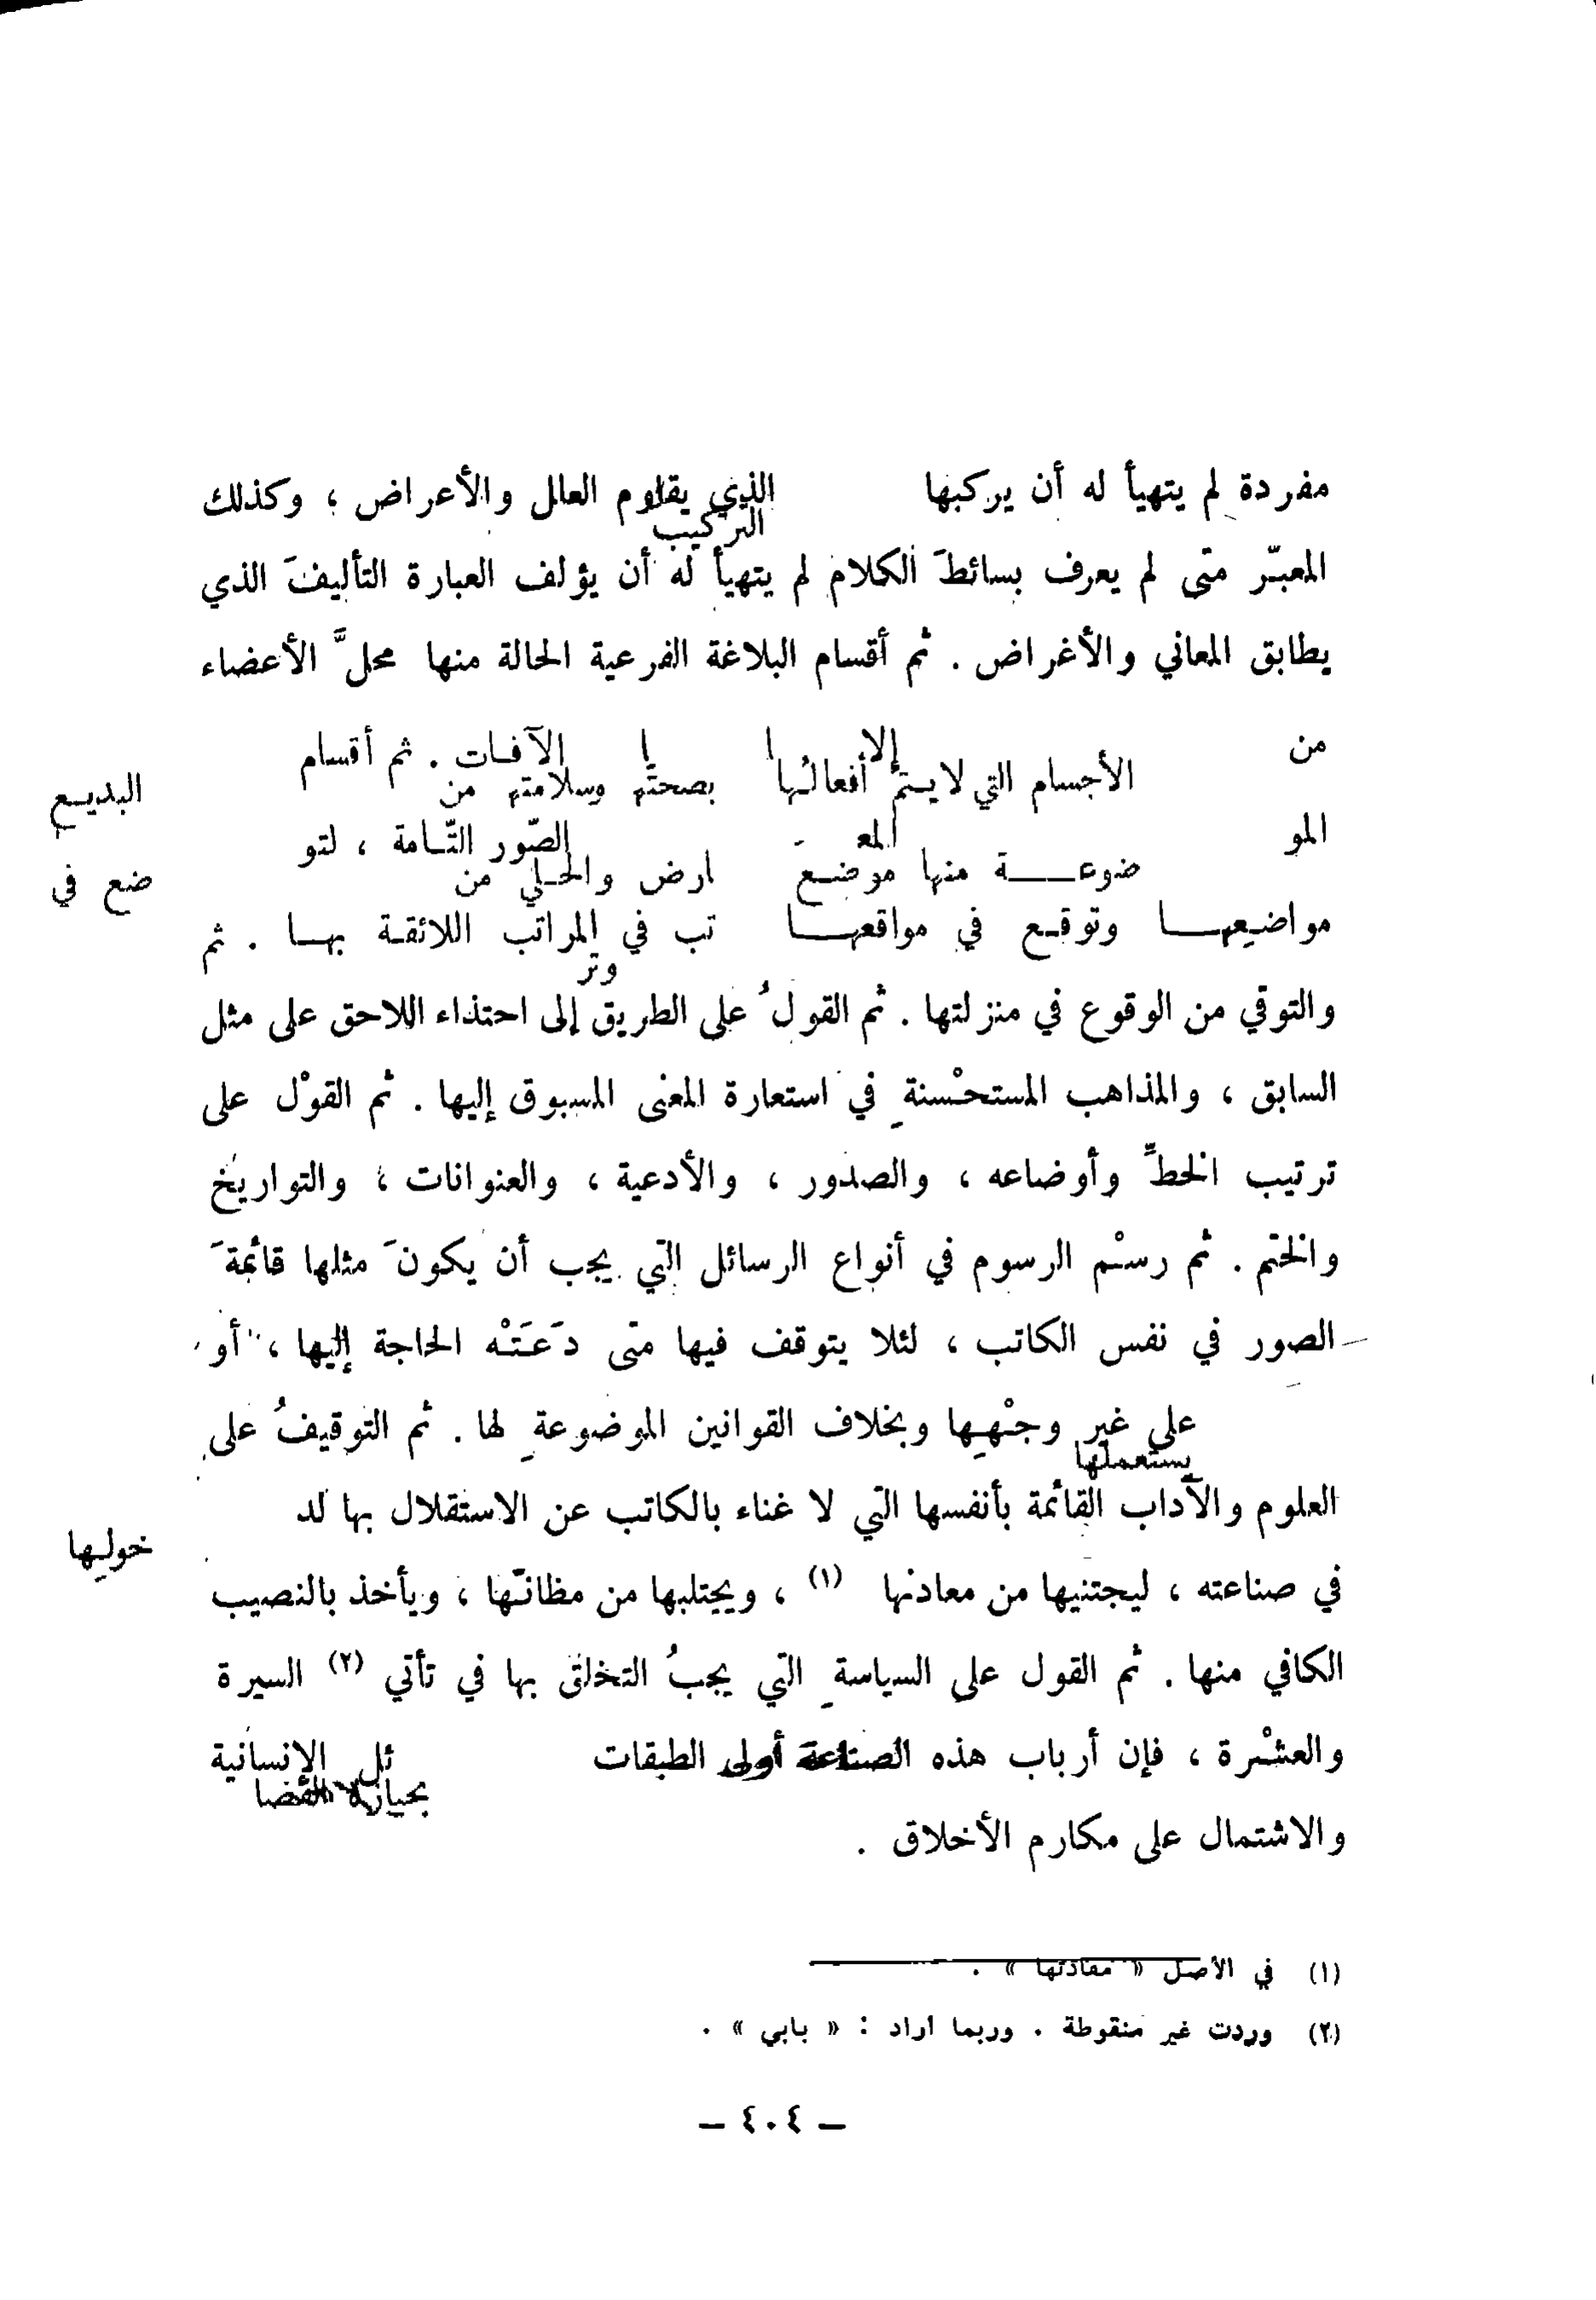 مفردة لم يتهيأ له أن يركبها التركيب الذي يقاوم العلل والأعراض ؛ وكذلك
المعبّر متى لم يعرف بسائطَ الكلام لم يتهيأ له أن يؤلف العبارة التأليفَ الذي
يطابق المعاني والأغراض . ثم أقسام البلاغة الفرعية الحالة منها محلَّ الأعضاء
من الأجسام التي لا يتم أفعالُها إلا بصحتها وسلامتها من الآفات . ثم أقسام البديع
الموضوعة منها موضع المعارض والحلي من الصّور التّامة ، لتوضع في
مواضيعها وتوقع في مواقعها وترتب في المراتب اللائقة بها . ثم
والتوقي من الوقوع في منزلتها . ثم القولُ على الطريق إلى احتذاء اللاحق على مثل
السابق ، والمذاهب المستحْسنةِ في استعارة المعنى المسبوق إليها . ثم القوْل على
ترتيب الخطِّ وأوضاعه ، والصدور ، والأدعية ، والعنوانات ، والتواريخ
والختم . ثم رسْم الرسوم في أنواع الرسائل التي يجب أن يكونَ مثلها قائمةَ
الصور في نفس الكاتب ، لئلا يتوقف فيها متى دَعَتْه الحاجة إليها ، أو
يستعملها على غير وجْهِها وبخلاف القوانين الموضوعةِ لها . ثم التوقيفُ على
العلوم والآداب القائمة بأنفسها التي لا غناء بالكاتب عن الاستقلال بها لدخولِها
في صناعته ، ليجتنيها من معادنها (١) ، ويجتلبها من مظانّها ، ويأخذ بالنصيب
الكافي منها . ثم القول على السياسةِ التي يجبُ التخلق بها في تأتي (٢) السيرة
والعشْرة ، فإن أرباب هذه الصناعة أولى الطبقات بحيازة الفضائل الإنسانية
والاشتمال على مكارم الأخلاق .
(١) في الأصل « مقادتها » .
(٢) وردت غير منقوطة . وربما أراد : « بابي » .
– ٤٠٤ –